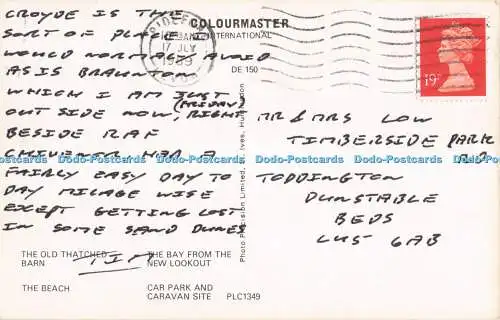 CROYDE IS THE
SORT OF PLACE I
WOULD NORMALY AVOID
AS IS BRAUNTON
WHICH I AM JUST
(FRIDAY)
OUT SIDE NOW, RIGHT
BESIDE RAF
CHIVENOR HAD A
FAIRLY EASY DAY TO
DAY MILAGE WISE
EXCEPT GETTING LOST
IN SOME SAND DUNES
TIM
THE OLD THATCHED
BARN
THE BEACH
THE BAY FROM THE
NEW LOOKOUT
CAR PARK AND
CARAVAN SITE PLC1349
COLOURMASTER
INTERNATIONAL
DE 150
BIDEFORD
17 JLY
1989
19P
Photo Precision Limited, St. Ives, Huntingdon
MR & MRS LOW
TIMBERSIDE PARK
TODDINGTON
DUNSTABLE
BEDS
LU5 6AB
Dodo-Postcards Dodo-Postcards Dodo-Postcards Dodo-Postcards Dodo-Postcards Dodo-Postcards